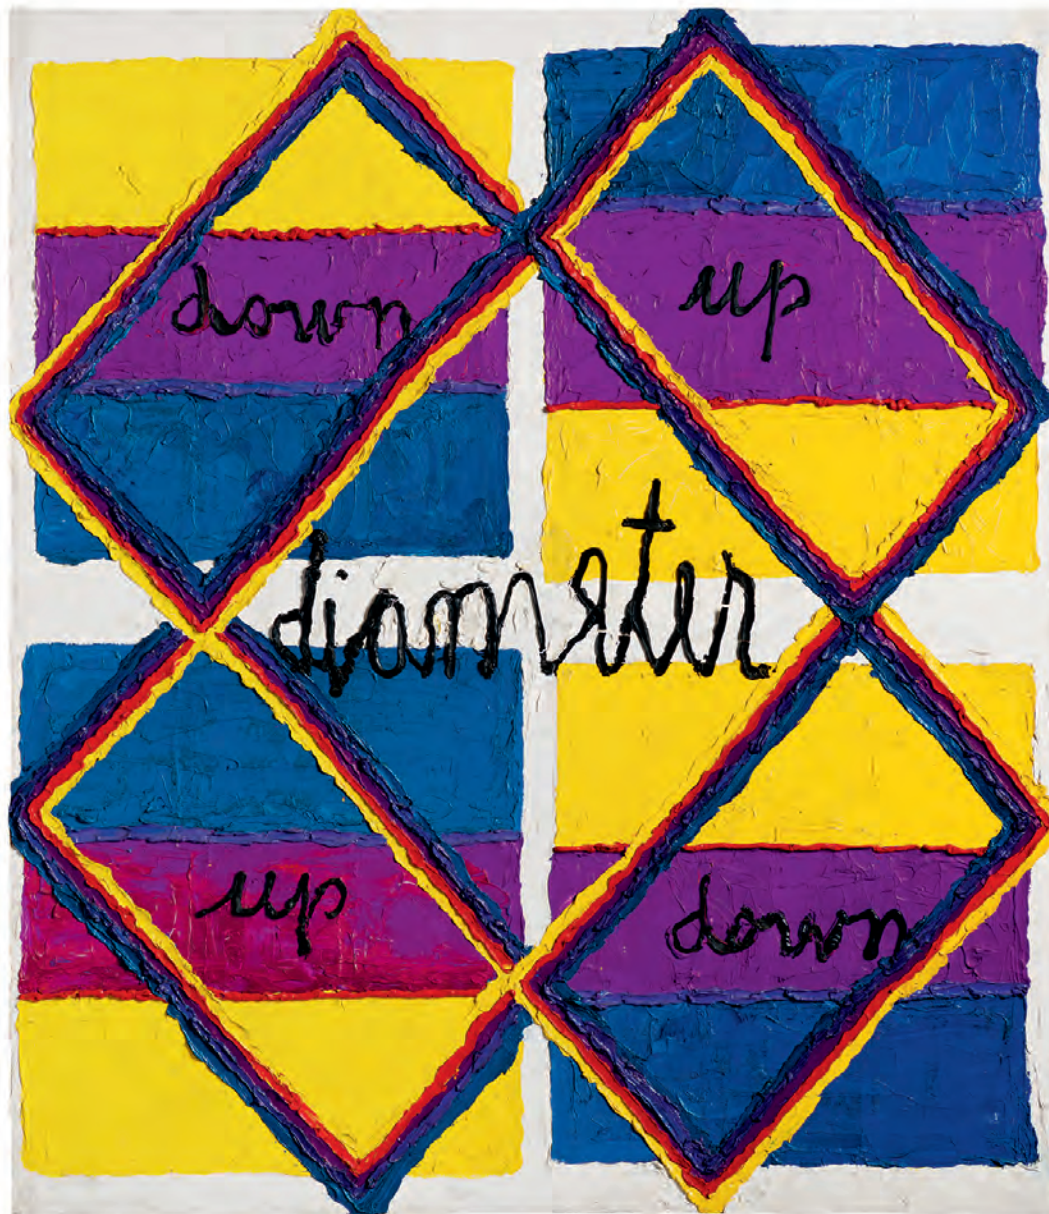 down up
diameter
up down